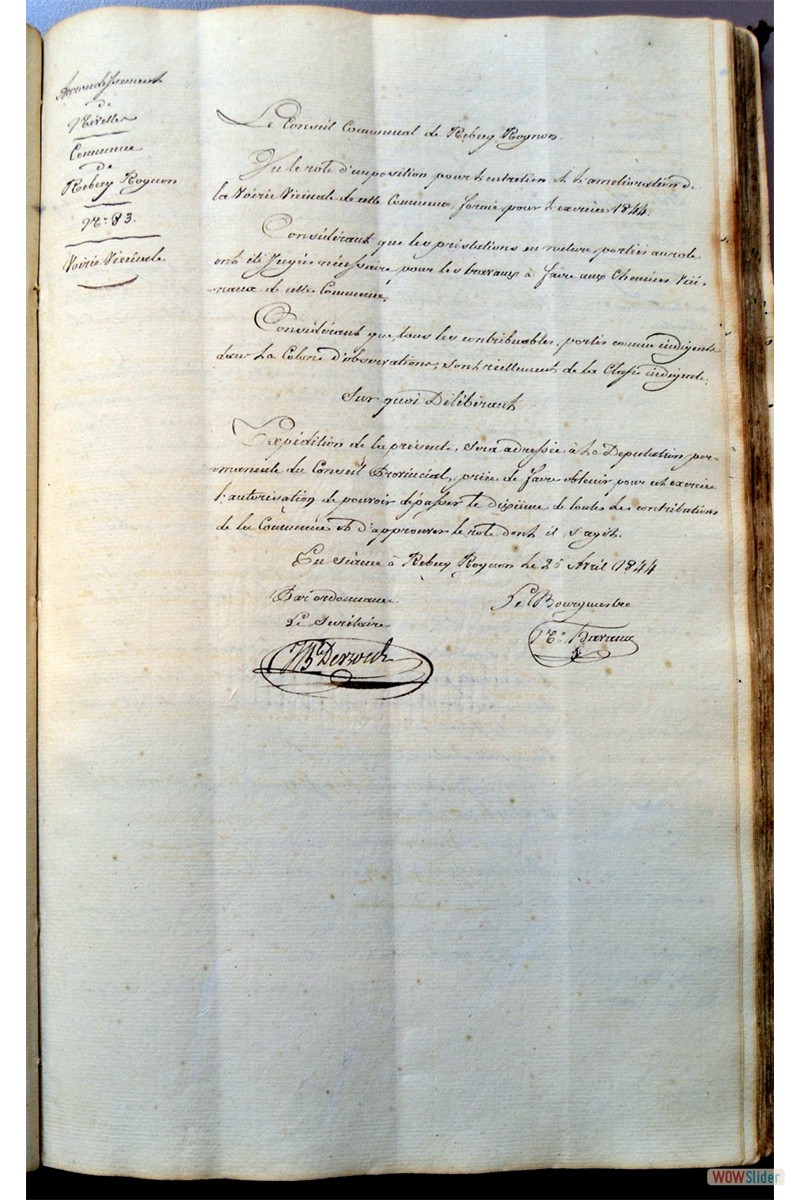 Arrondissement
de
Nivelles
Commune
de
Rebecq Rognon
N° 83.
Voirie Vicinale
Le Conseil Communal de Rebecq Rognon.
Vu le rôle d'imposition pour l'entretien et l'amélioration de
la Voirie Vicinale de cette Commune, formé pour l'exercice 1844.
Considérant que les préstations en nature portées au role
ont été Jugées nécessaire pour les travaux à faire aux Chemins Vici-
naux de cette Commune.
Considérant que tous les contribuables, portés comme indigents
dans la Colone d'observations, sont réellement de la Classe indigente.
Sur quoi Délibérant
Expédition de la présente, sera adressée à la Deputation per-
manente du Conseil Provincial, priée de faire obtenir pour cet exercice
l'autorisation de pouvoir dépasser le dixième de toutes les contributions
de la Commune et d'approuver le role dont il s'agit.
En séance à Rebecq Rognon le 25 Avril 1844
Par ordonnance
Le Secrétaire
Le Bourgmestre
WOWSlider